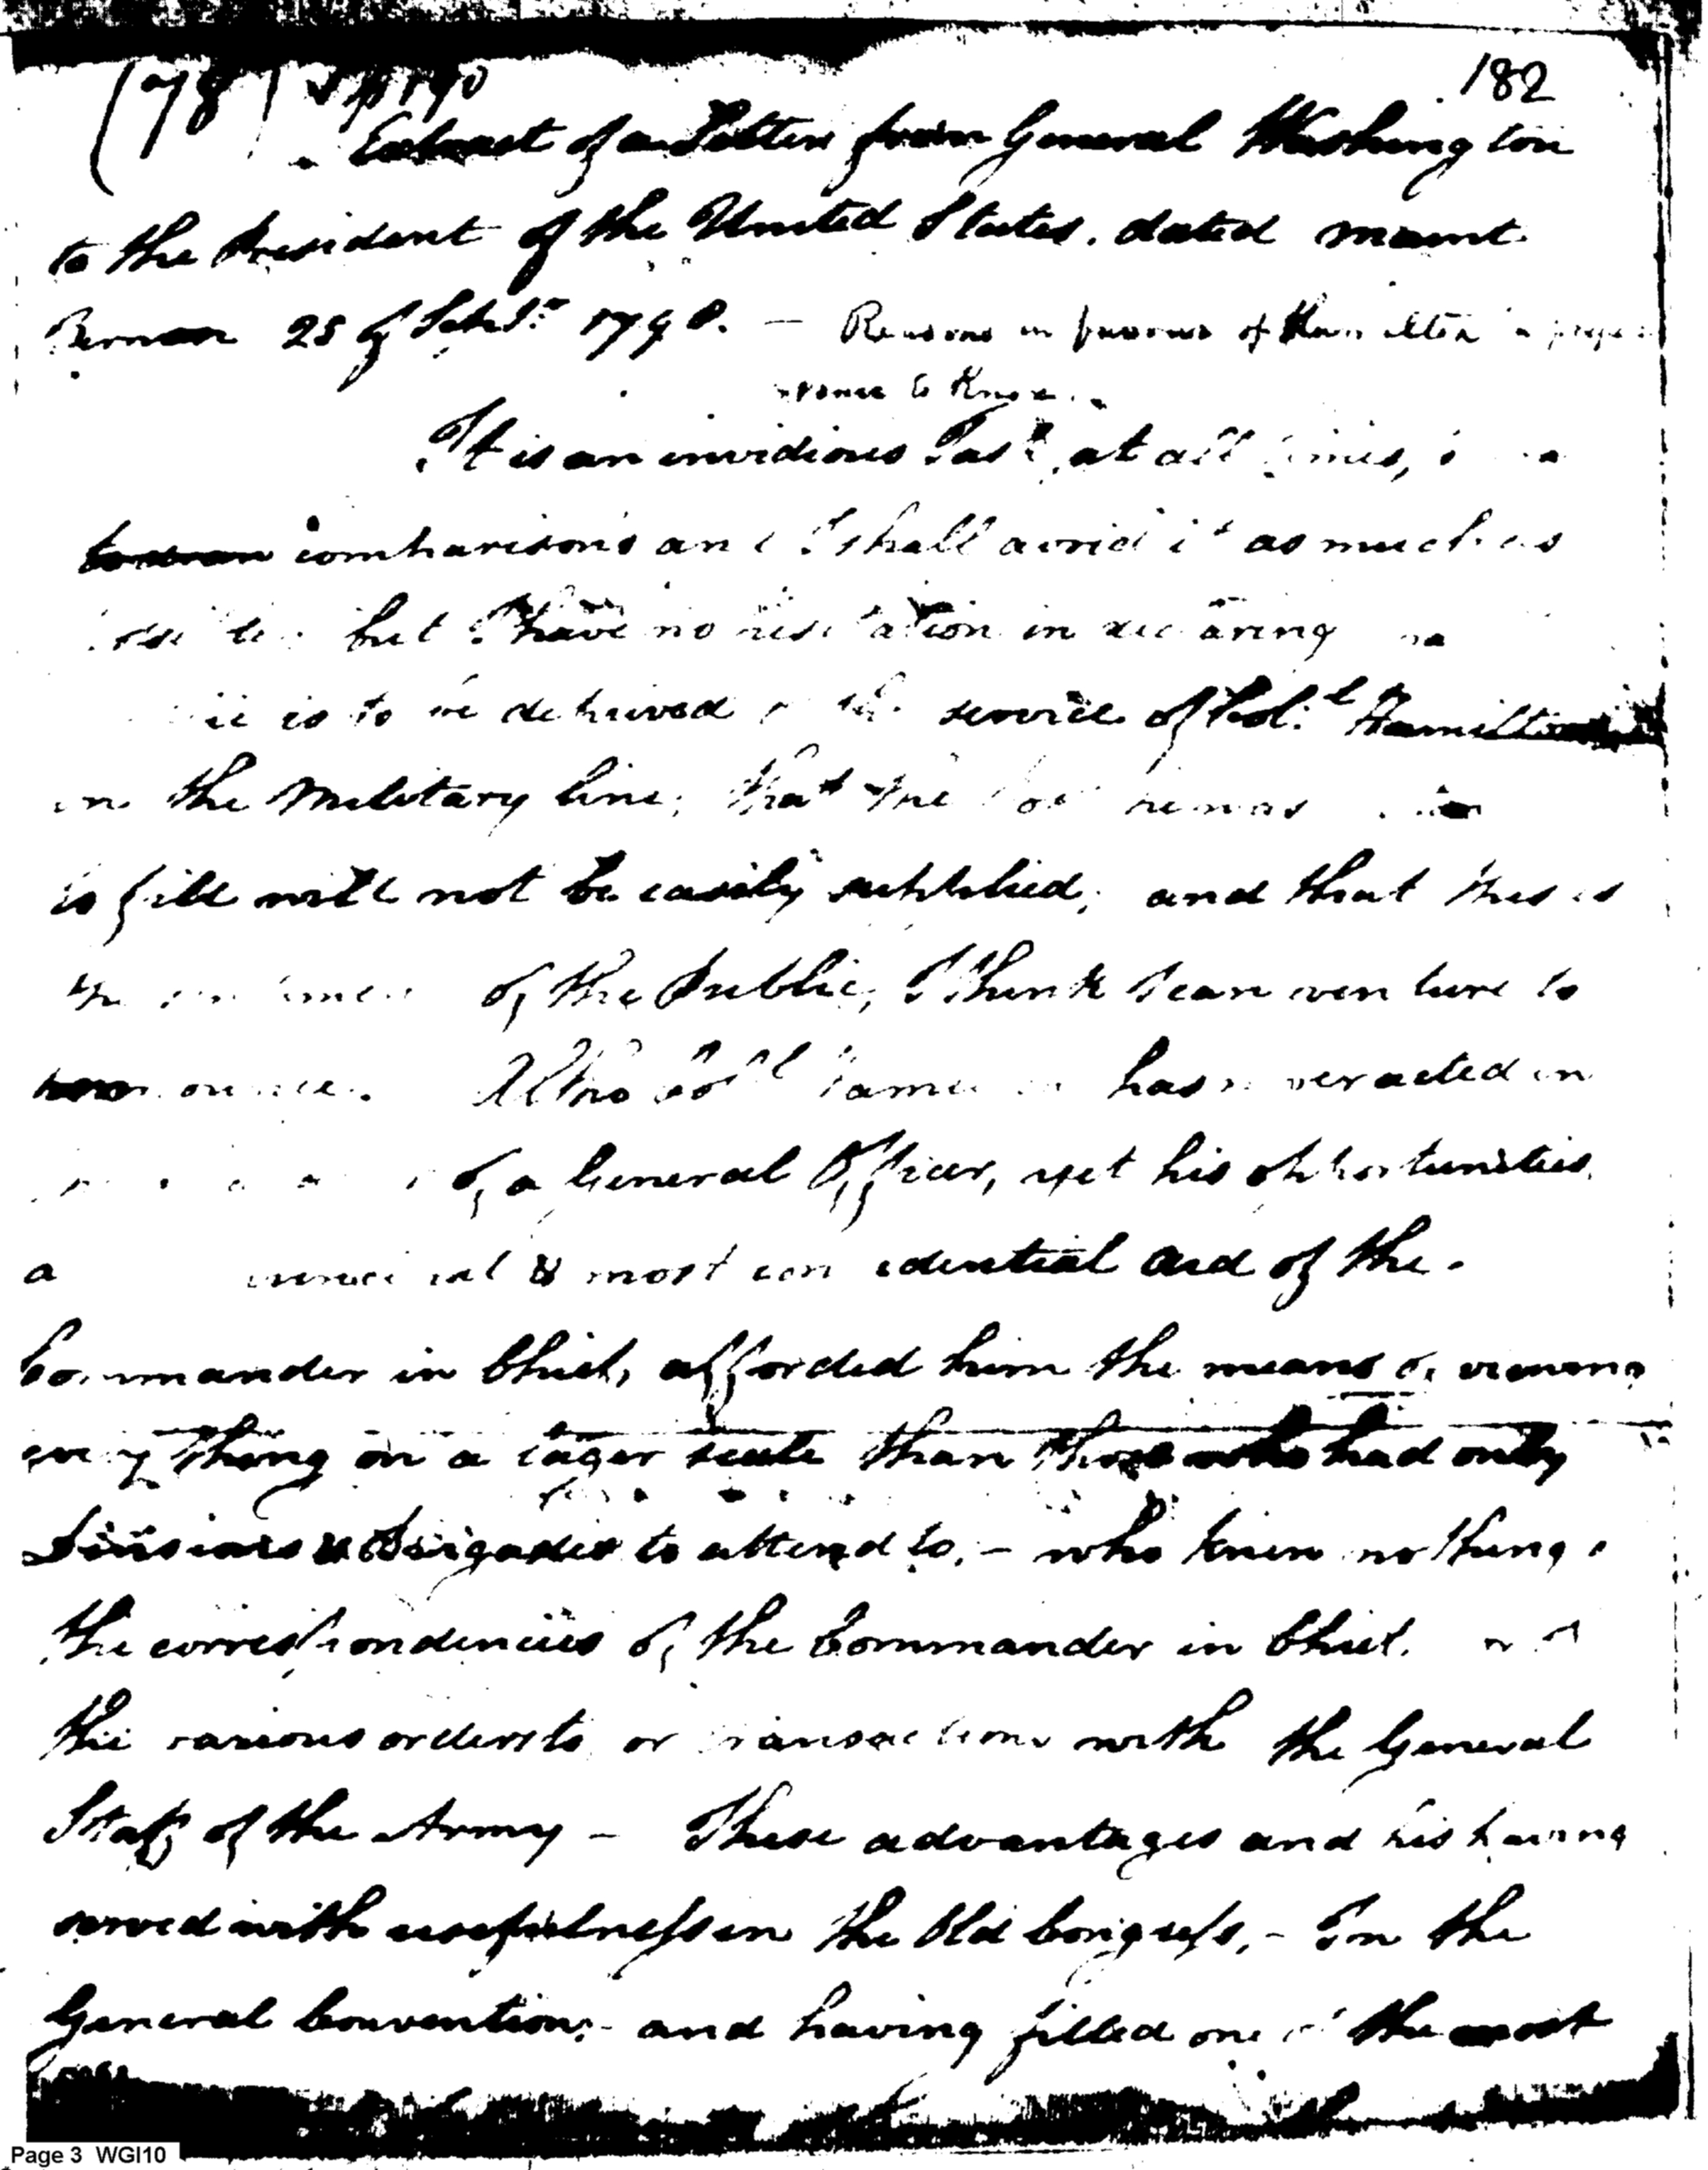 (78) 182
Extract of a Letter from General Washington
to the President of the United States. dated mount
Vernon 25 of Sebt.r 1798. — Reasons in favour of Hamilton in
to Knox.
It is an invidious Task, at all times,
comparisons and I shall avoid it as much as
but I have no hesitation in declaring
is to be deprived of the service of Col.l Hamilton
in the Military line, that the
to fill will not be easily supplied; and that this is
the of the Public, I think I can venture to
Altho Col.l has never acted in
of a General Officer, yet his opportunities
a & most confidential aid of the
Commander in Chief, afforded him the means of viewing
every thing on a lager scale than those who had only
Divisions & Brigades to attend to, – who knew nothing
the correspondencies of the Commander in Chief. or of
the various orders to or transactions with the General
Staff of the Army – These advantages and his having
served with usefulness in the Old Congress, – In the
General Convention, – and having filled one of the most
Page 3 WGI10